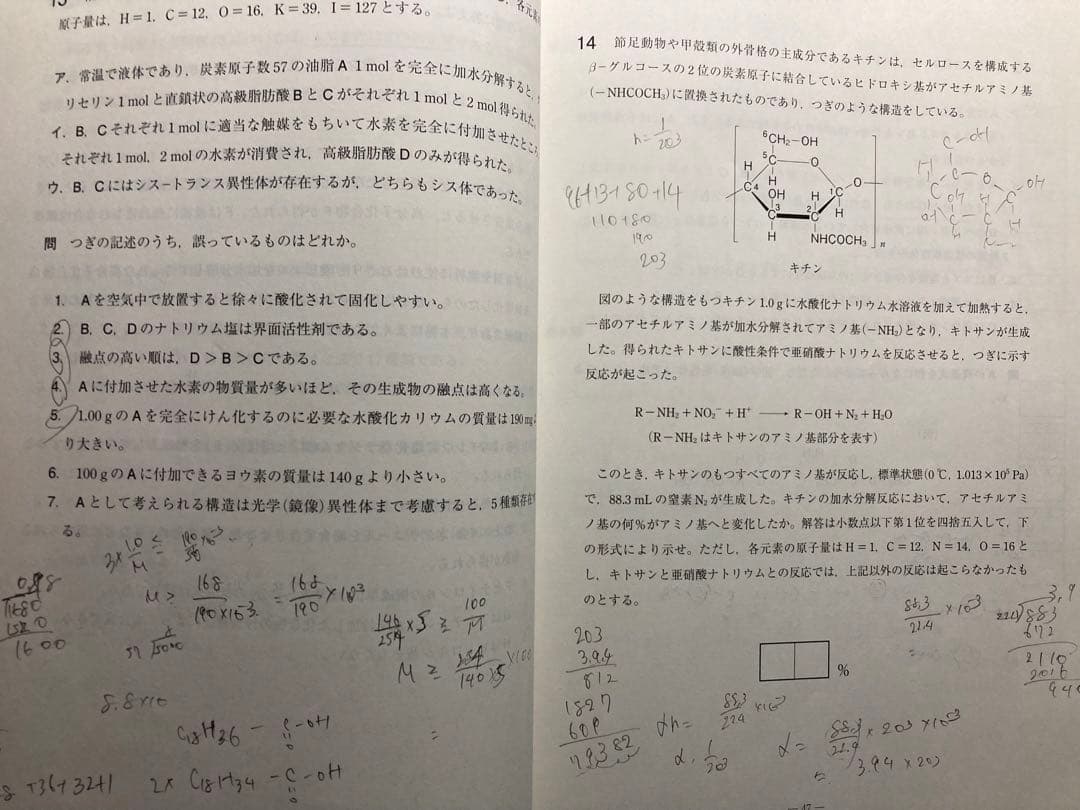 原子量は，H＝1．C＝12，O＝16，K＝39，I＝127とする。
ア．常温で液体であり，炭素原子数57の油脂A 1molを完全に加水分解すると，
リセリン1molと直鎖状の高級脂肪酸BとCがそれぞれ1molと2mol得られた。
イ．B，Cそれぞれ1molに適当な触媒をもちいて水素を完全に付加させたところ
それぞれ1mol．2molの水素が消費され，高級脂肪酸Dのみが得られた。
ウ．B，Cにはシス－トランス異性体が存在するが，どちらもシス体であった。
問 つぎの記述のうち，誤っているものはどれか。
1． Aを空気中で放置すると徐々に酸化されて固化しやすい。
2． B，C，Dのナトリウム塩は界面活性剤である。
3． 融点の高い順は，D＞B＞Cである。
4． Aに付加させた水素の物質量が多いほど，その生成物の融点は高くなる。
5． 1.00gのAを完全にけん化するのに必要な水酸化カリウムの質量は190mg
り大きい。
6． 100gのAに付加できるヨウ素の質量は140gより小さい。
7． Aとして考えられる構造は光学（鏡像）異性体まで考慮すると，5種類存在
る。
168
190×10⁻³
＝
168
190
×10³
100
M
8.8×10
C18H36 － C－OH
O
+36+32+1 2× C18H34 － C－OH
O
14 節足動物や甲殻類の外骨格の主成分であるキチンは，セルロースを構成する
β－グルコースの2位の炭素原子に結合しているヒドロキシ基がアセチルアミノ基
（－NHCOCH₃）に置換されたものであり，つぎのような構造をしている。
n＝1/203
96+13+80+14
110+80
190
203
⁶CH₂－OH
⁵C O
H H H
⁴C OH H ¹C O
³C ²C H
H NHCOCH₃ n
キチン
図のような構造をもつキチン1.0gに水酸化ナトリウム水溶液を加えて加熱すると，
一部のアセチルアミノ基が加水分解されてアミノ基（－NH₂）となり，キトサンが生成
した。得られたキトサンに酸性条件で亜硝酸ナトリウムを反応させると，つぎに示す
反応が起こった。
R－NH₂＋NO₂⁻＋H⁺ ⟶ R－OH＋N₂＋H₂O
（R－NH₂はキトサンのアミノ基部分を表す）
このとき，キトサンのもつすべてのアミノ基が反応し，標準状態（0℃，1.013×10⁵Pa）
で，88.3mLの窒素N₂が生成した。キチンの加水分解反応において，アセチルアミ
ノ基の何％がアミノ基へと変化したか。解答は小数点以下第1位を四捨五入して，下
の形式により示せ。ただし，各元素の原子量はH＝1，C＝12，N＝14，O＝16と
し，キトサンと亜硝酸ナトリウムとの反応では，上記以外の反応は起こらなかったも
のとする。
％
88.3/21.4 ×10⁻³
203
3.94
812
1827
609
αn＝ 88.3/22.4 ×10⁻³
α・1/203
α＝ 88.3/21.4 × 203 ×10⁻³
＝ 3.94×203
— 47 —